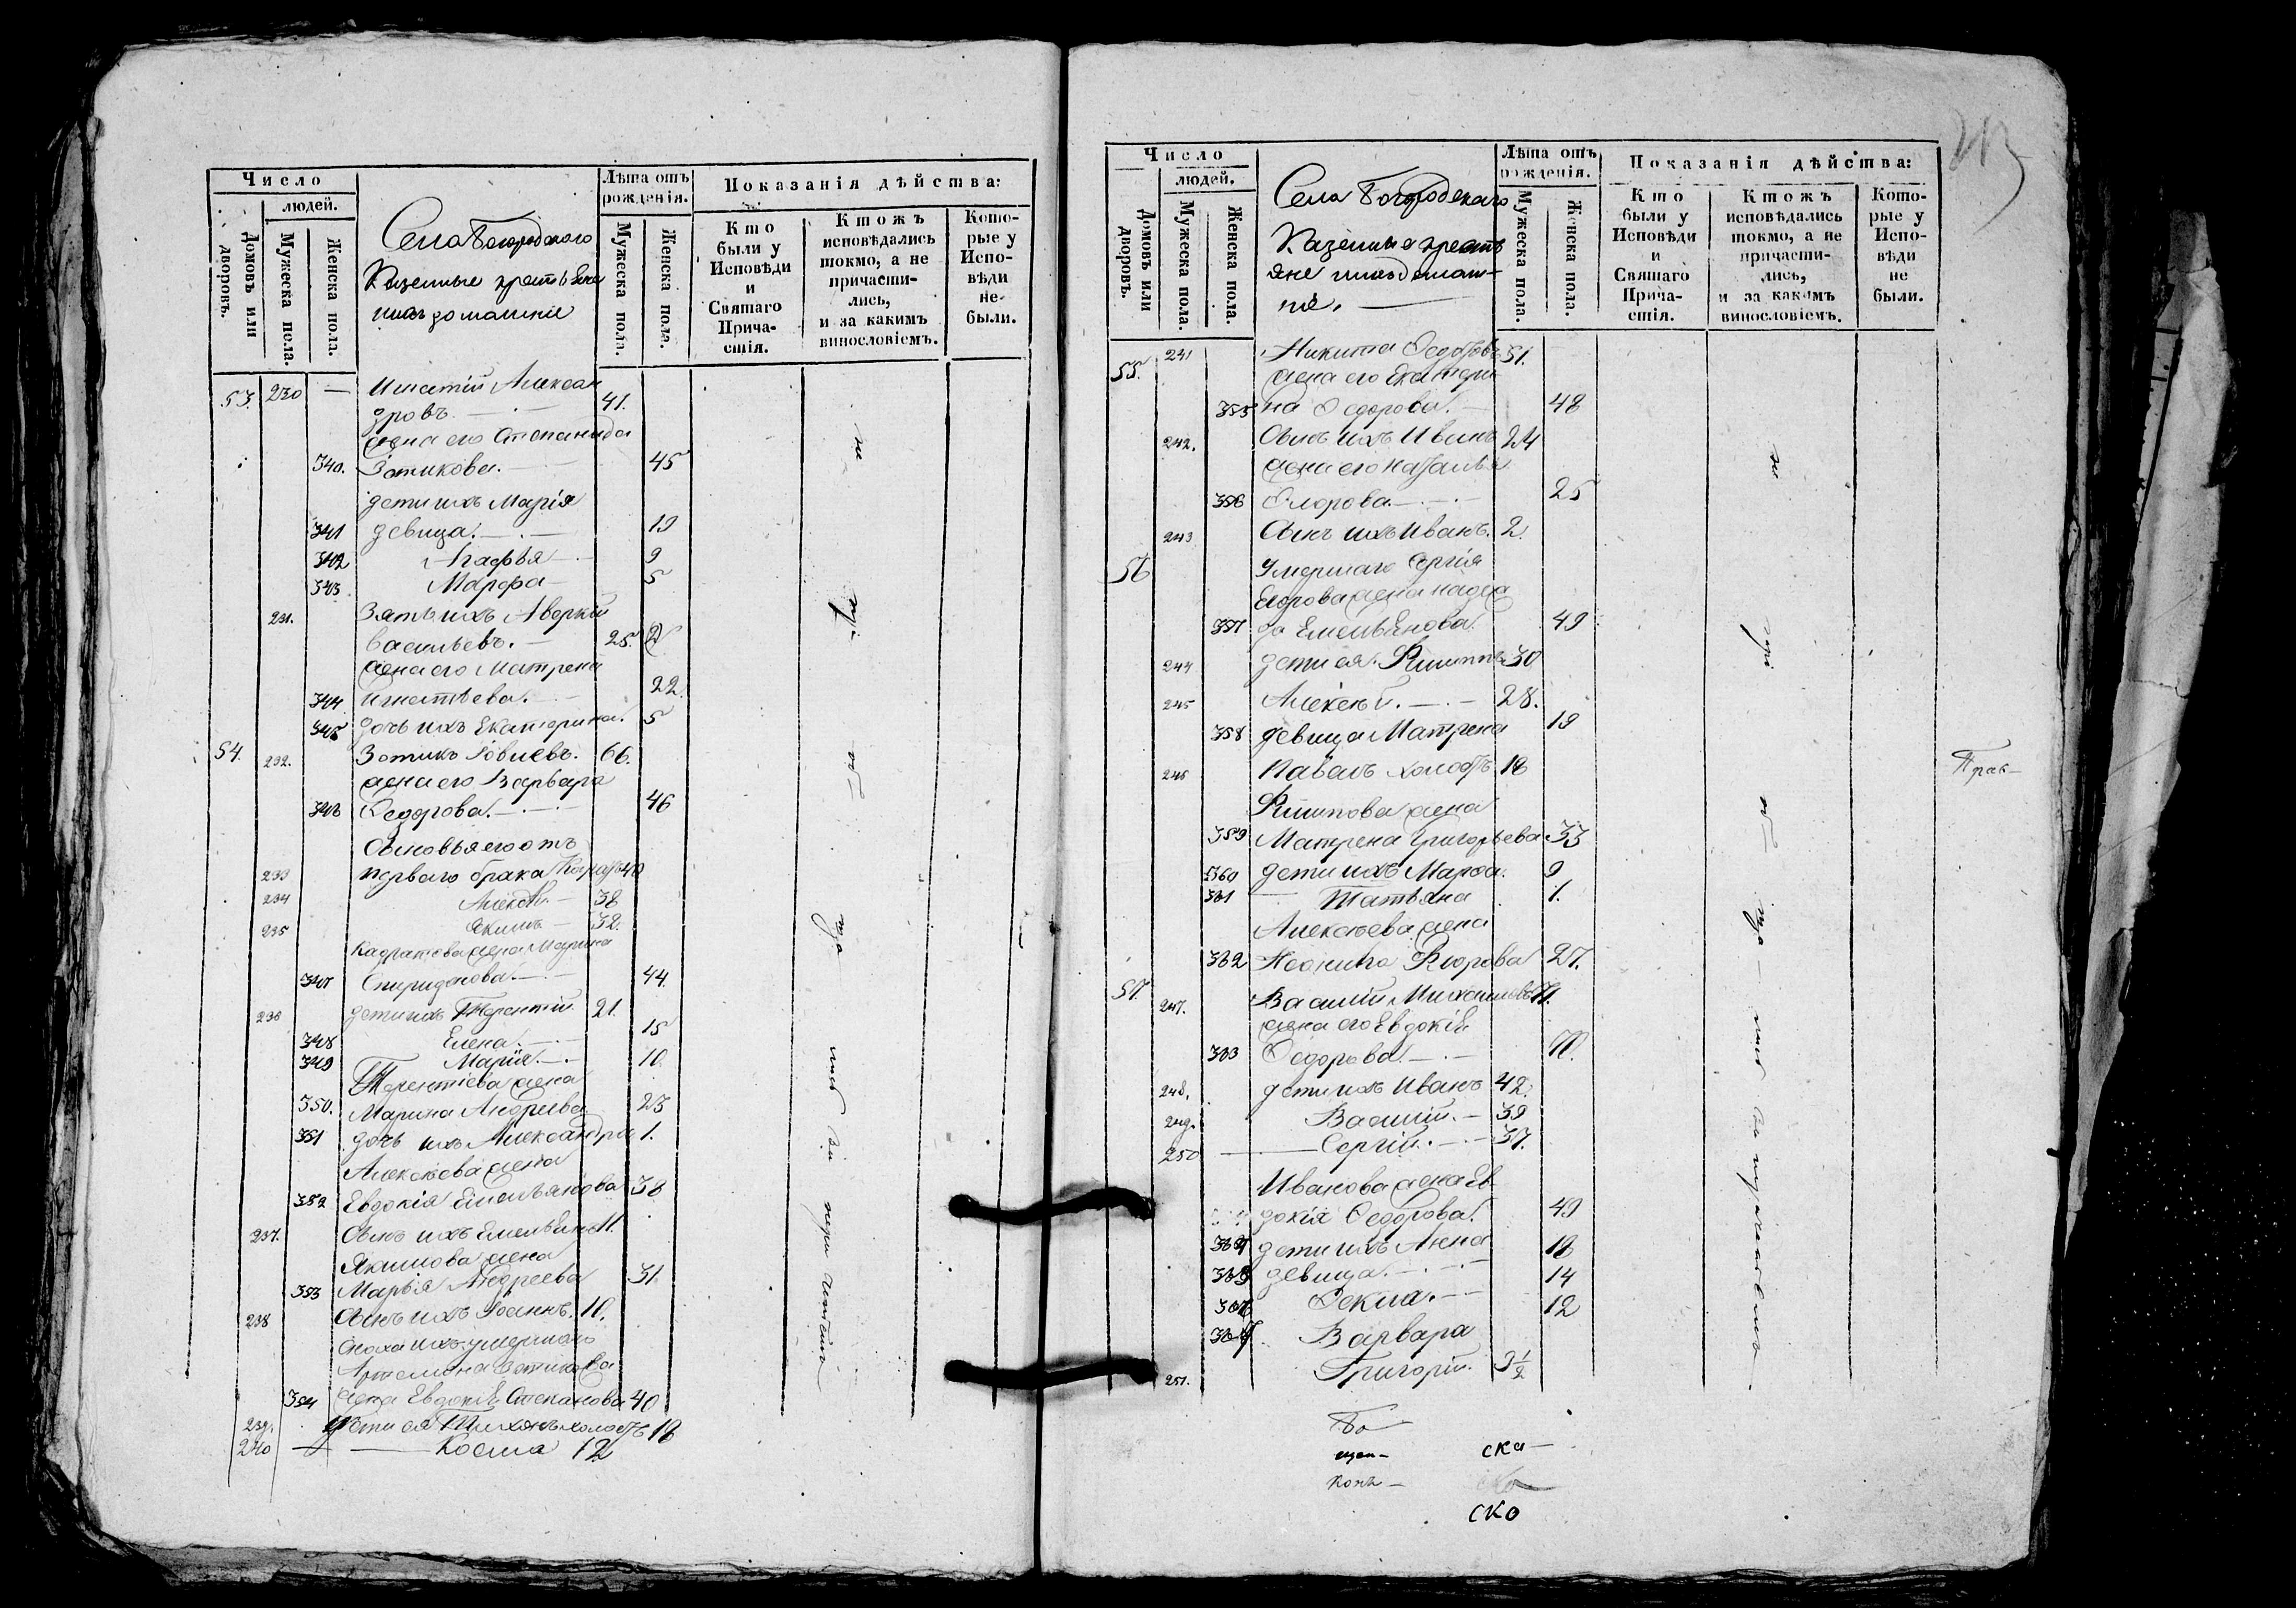 Число
людей.
Домовъ или дворовъ.
Мужеска пола.
Женска пола.
Села Богородскаго
Казенные крестьяне
и ихъ домашніе
Лѣта отъ рожденія.
Мужеска пола.
Женска пола.
Показанія дѣйства:
Кто были у Исповѣди и Святаго Причастія.
Ктожъ исповѣдались токмо, а не причастились, и за какимъ винословіемъ.
Которые у Исповѣди не были.
53. 230 — Игнатій Алексан
дровъ. — 41.
жена его Степанида
340. Зотикова. — 45
дети ихъ Марія
341 девица. — 19
342 Агафья — 9
343 Марфа — 5
231. Зять ихъ Аверкій
Васильевъ. — 25.
жена его Матрена
344 Игнатьева. — 22.
345 дочь ихъ Екатерина. 5
54. 232. Зотикъ Іовлевъ. 66.
жена его Варвара
346 Федорова. — 46
Сыновья его отъ
233 перваго брака 40
234 Алексѣй — 38
235 Якимъ — 32.
жена Марина
347 Спиридонова. — 44.
236 дети ихъ Терентій 21.
348 Елена. — 15
349 Марія. — 10.
Терентіева жена
350. Марина Андреева 23
351 дочь ихъ Александра 1.
Алексѣева жена
352 Евдокія Емельянова 38
237. Сынъ ихъ Емельянъ 11.
Якимова жена
353 Марья Андреева 31.
238 Сынъ ихъ Іоаннъ. 10.
Сноха ихъ умершаго
Артемона Зотикова
354 жена Евдокія Степанова 40
239. Дети ея Тихонъ холостъ 18
240 — Косма 12
Число
людей.
Домовъ или дворовъ.
Мужеска пола.
Женска пола.
Села Богородскаго
Казенные кресть
яне и ихъ домаш-
ніе. —
Лѣта отъ рожденія.
Мужеска пола.
Женска пола.
Показанія дѣйства:
Кто были у Исповѣди и Святаго Причастія.
Ктожъ исповѣдались токмо, а не причастились, и за какимъ винословіемъ.
Которые у Исповѣди не были.
55. 241 Никита Федотовъ 51.
жена его Екатери-
355 на Федорова. — 48
242. Сынъ ихъ Иванъ 24
жена его Наталья
356 25
243 Сынъ ихъ Иванъ. 2.
56 Умершаго Сергія
Егорова жена Надеж
357 да Емельянова. 49
244 дети ея. Филиппъ 30
245 Алексѣй. — 28.
358 девица Матрена 19
246 Павелъ холостъ 18
Филипова жена
359 Матрена Григорьева 33
360 дети ихъ Марфа. 9
361 — Татьяна 1.
Алексѣева жена
362 27.
57. 247. Василій Михайловъ 71.
жена его Евдокія
363 Федорова. — 70.
248. дети ихъ Иванъ 42.
249. Василій. — 39
250 — Сергій. — 37.
Иванова жена Ев
докія Федорова. 49
дети ихъ Анна 18
девица. — 14
Фекла. — 12
Варвара
251. Григорій. 9½
Прав—
Бо
щен— ска—
конъ—
ско